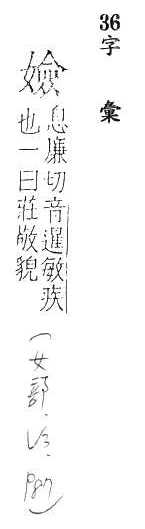 36字 彙
嬐
息廉切音暹敏疾
也一曰莊敬貌
(女部.